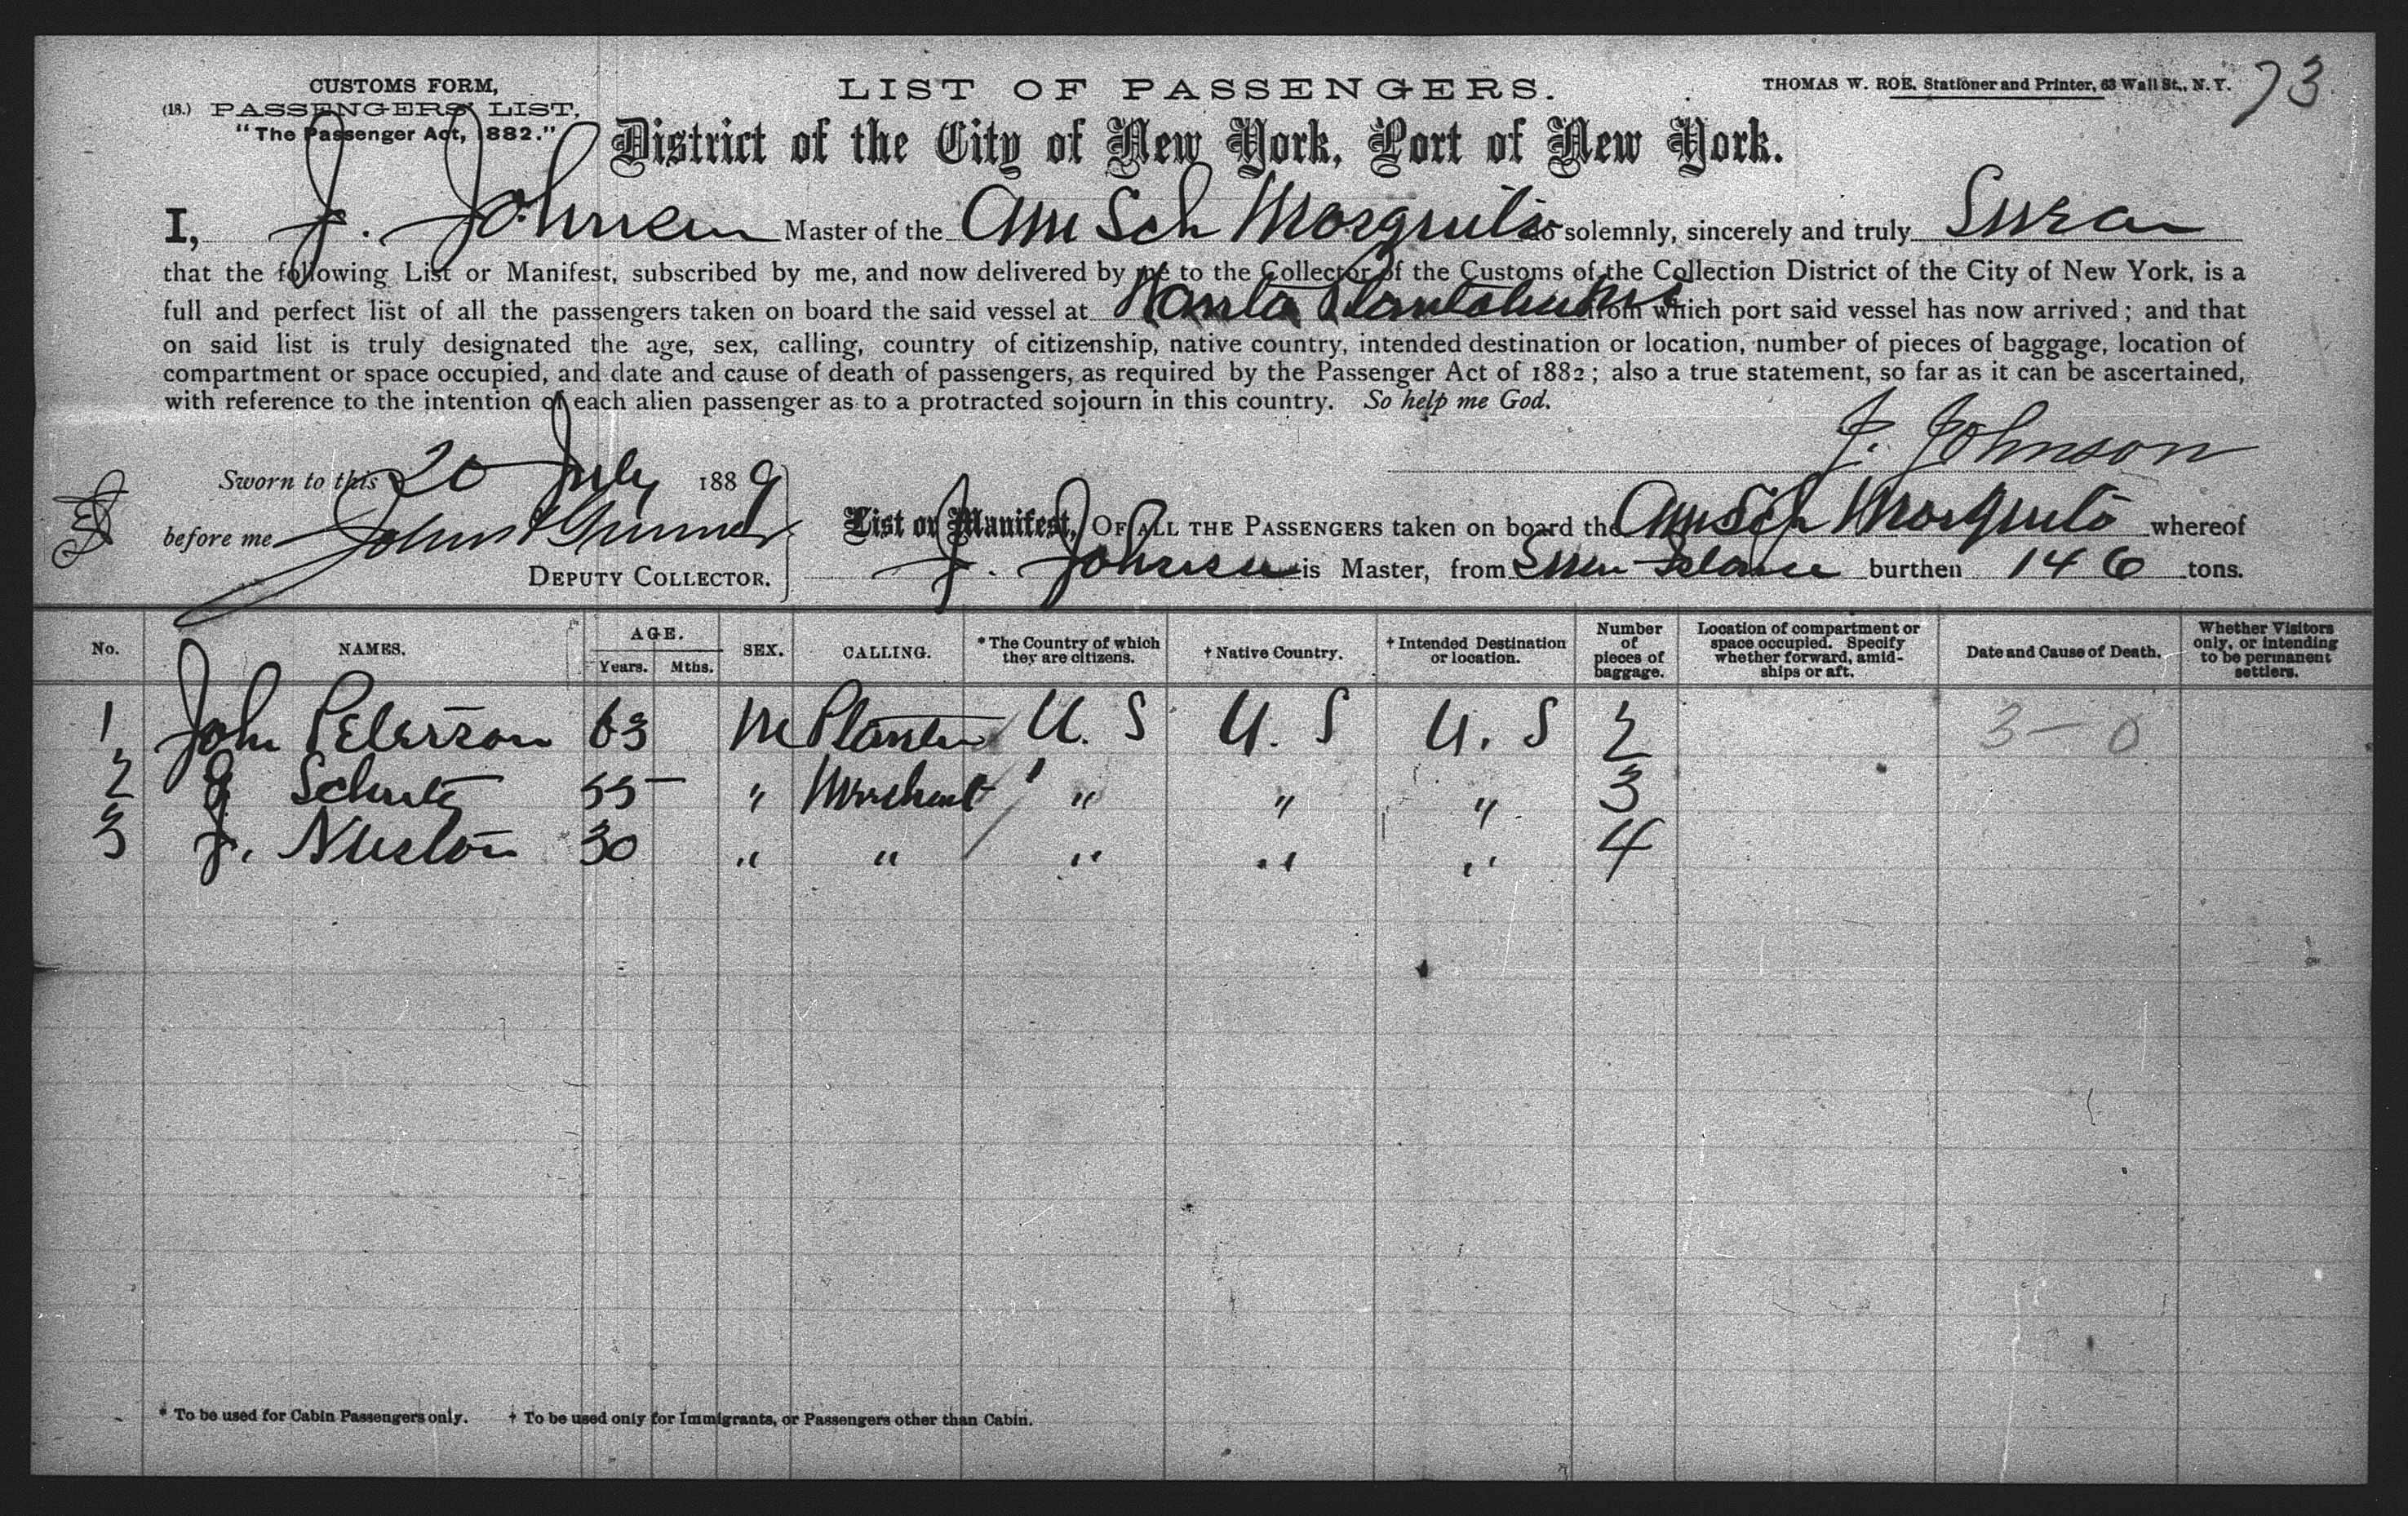 CUSTOMS FORM,
(18.) PASSENGERS' LIST,
"The Passenger Act, 1882."
LIST OF PASSENGERS.
THOMAS W. ROE, Stationer and Printer, 63 Wall St., N. Y.
73
District of the City of New York, Port of New York.
I, J. Johnson Master of the Am Sch Morquito do solemnly, sincerely and truly Swear
that the following List or Manifest, subscribed by me, and now delivered by me to the Collector of the Customs of the Collection District of the City of New York, is a
full and perfect list of all the passengers taken on board the said vessel at from which port said vessel has now arrived; and that
on said list is truly designated the age, sex, calling, country of citizenship, native country, intended destination or location, number of pieces of baggage, location of
compartment or space occupied, and date and cause of death of passengers, as required by the Passenger Act of 1882; also a true statement, so far as it can be ascertained,
with reference to the intention of each alien passenger as to a protracted sojourn in this country. So help me God.
J. Johnson
Sworn to this 20 July 1889
before me John
DEPUTY COLLECTOR.
List or Manifest, OF ALL THE PASSENGERS taken on board the Am Sch Morquito whereof
J. Johnson is Master, from burthen 146 tons.
No. NAMES. AGE. Years. Mths. SEX. CALLING. * The Country of which they are citizens. † Native Country. † Intended Destination or location. Number of pieces of baggage. Location of compartment or space occupied. Specify whether forward, amidships or aft. Date and Cause of Death. Whether Visitors only, or intending to be permanent settlers.
1 John Peterson 63 M Planter U. S U. S U. S 2 3-0
2 J Schutz 55 " Merchant " " " 3
3 J. 30 " " " " " 4
* To be used for Cabin Passengers only. † To be used only for Immigrants, or Passengers other than Cabin.